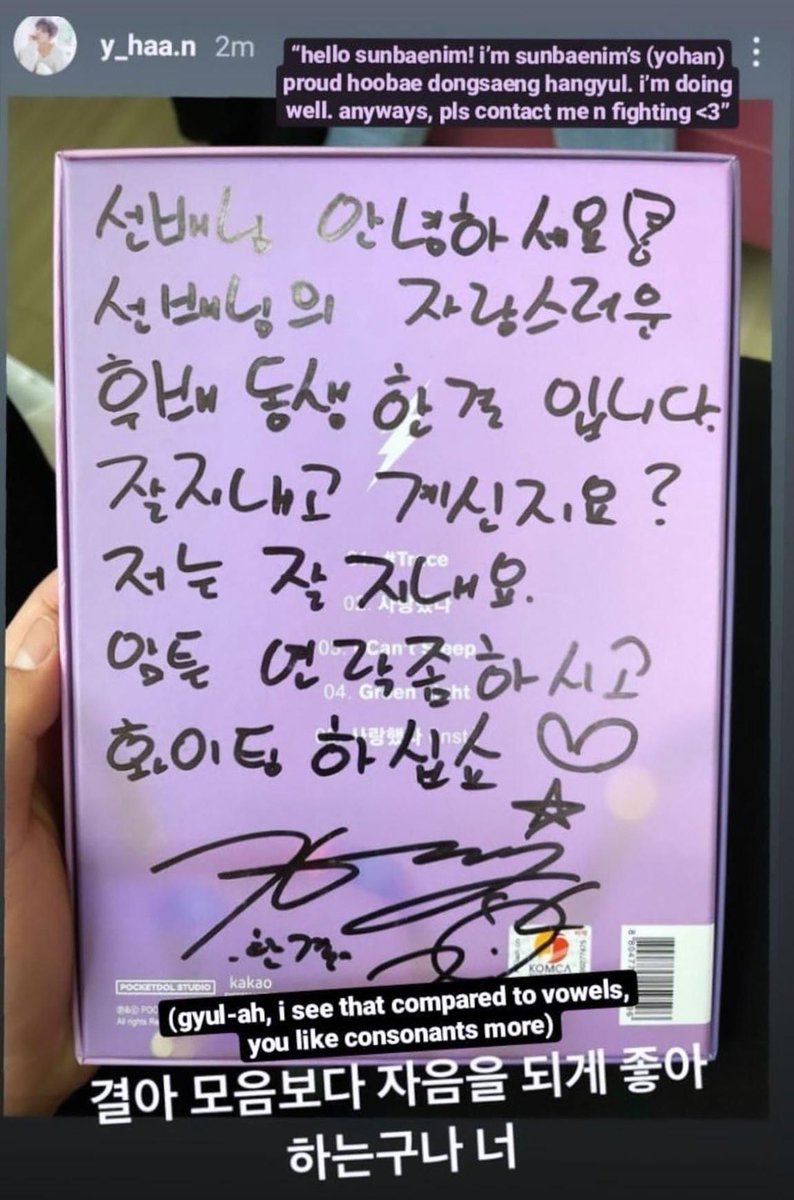 y_haa.n 2m
“hello sunbaenim! i’m sunbaenim’s (yohan)
proud hoobae dongsaeng hangyul. i’m doing
well. anyways, pls contact me n fighting <3”
선배님 안녕하세요
선배님의 자랑스러운
후배 동생 한결 입니다.
잘지내고 계신지요?
저는 잘 지내요.
암튼 연락좀하시고
화이팅 하십쇼 ♡
#Trace
02. 사랑했다
Can't Sleep
04. Green Light
사랑했다 Inst
한결
POCKETDOL STUDIO kakao
KOMCA
All rights
(gyul-ah, i see that compared to vowels,
you like consonants more)
결아 모음보다 자음을 되게 좋아
하는구나 너